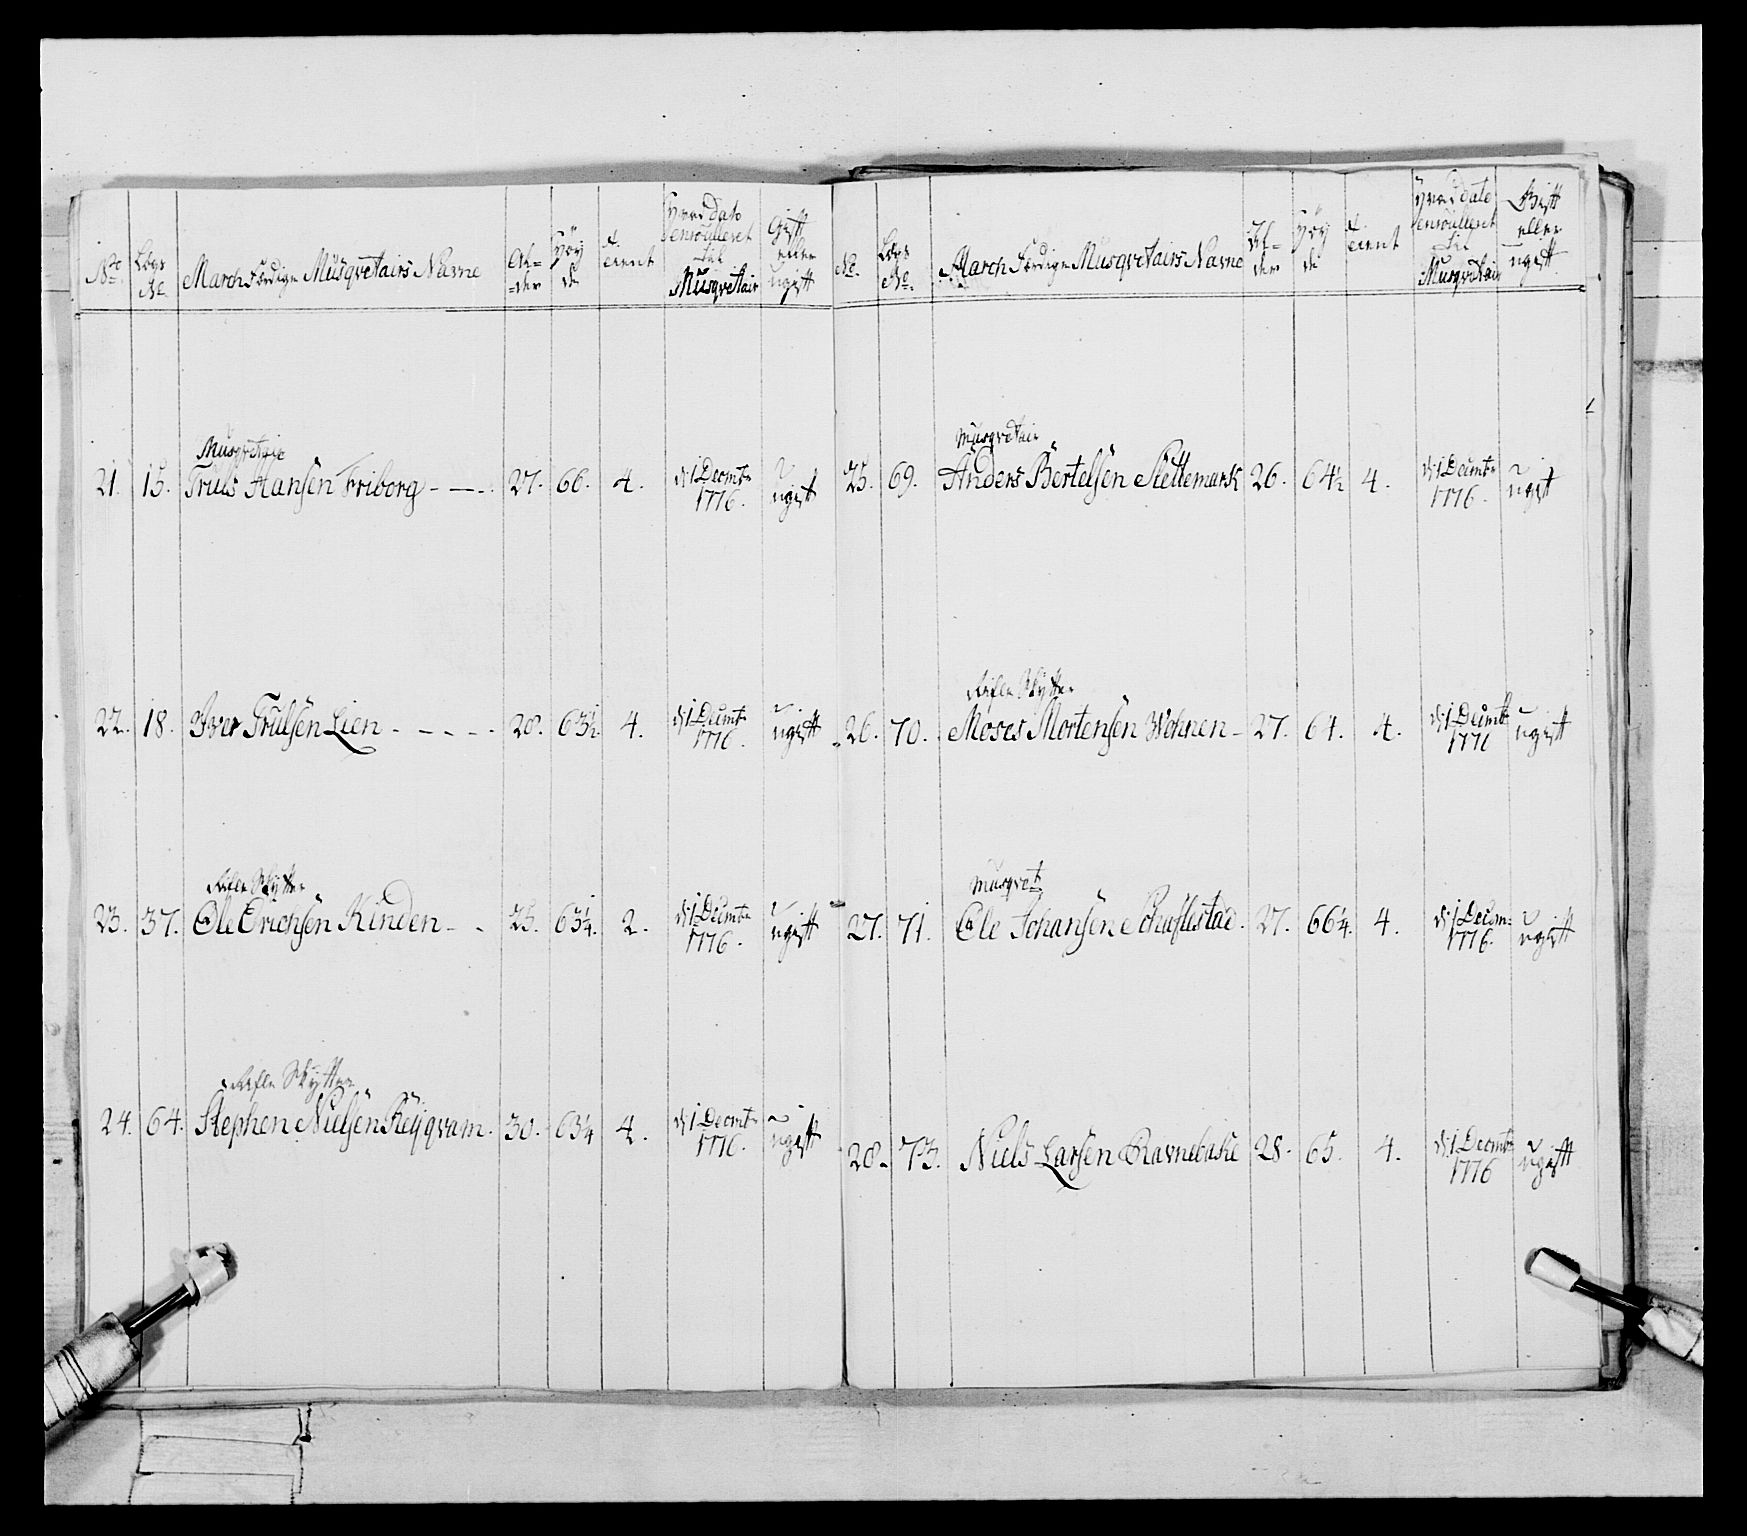 No. Lægs No. March Færdige Musqvetairs Navne Al=der Höy de Exercerent Hvad dato enroulleret til Musqvetair Gift eller ugift
Musqvetair
21. 15. Truls Hansen Friborg - - - . 27. 66. 4. d: 1 Decmbr 1776. ugift
22. 18. Iver Trulsen Lien - - - - - 28. 63½ 4. d: 1 Decmbr 1776. ugift
Rifle Skytter
23. 37. Ole Erichsen Kinden - - 25. 63¼. 2. d: 1 Decmbr 1776. ugift
Rifle Skytter
24. 64. Stephen Nielsen Røyqvam. 30. 63¼ 4. d: 1 Decmbr 1776. ugift
No. Lægs No. March Færdige Musqvetairs Navne Al=der Höy de Exercerent Hvad dato enroulleret til Musqvetair Gift eller ugift
Musqvetair
25. 69. Anders Bertelsen Slettemark 26. 64½ 4. d: 1 Decmbr 1776. ugift
Rifle Skytter
26. 70. Moses Mortensen Wohnen - 27. 64. 4. d: 1 Decmbr 1776 ugift
Musqvet:
27. 71. Ole Johansen 27. 66¼. 4. d: 1 Decem: 1776. ugift
28. 73. Niels Larsen Ravnebake 28. 65. 4. d: 1 Decmbr 1776 ugift